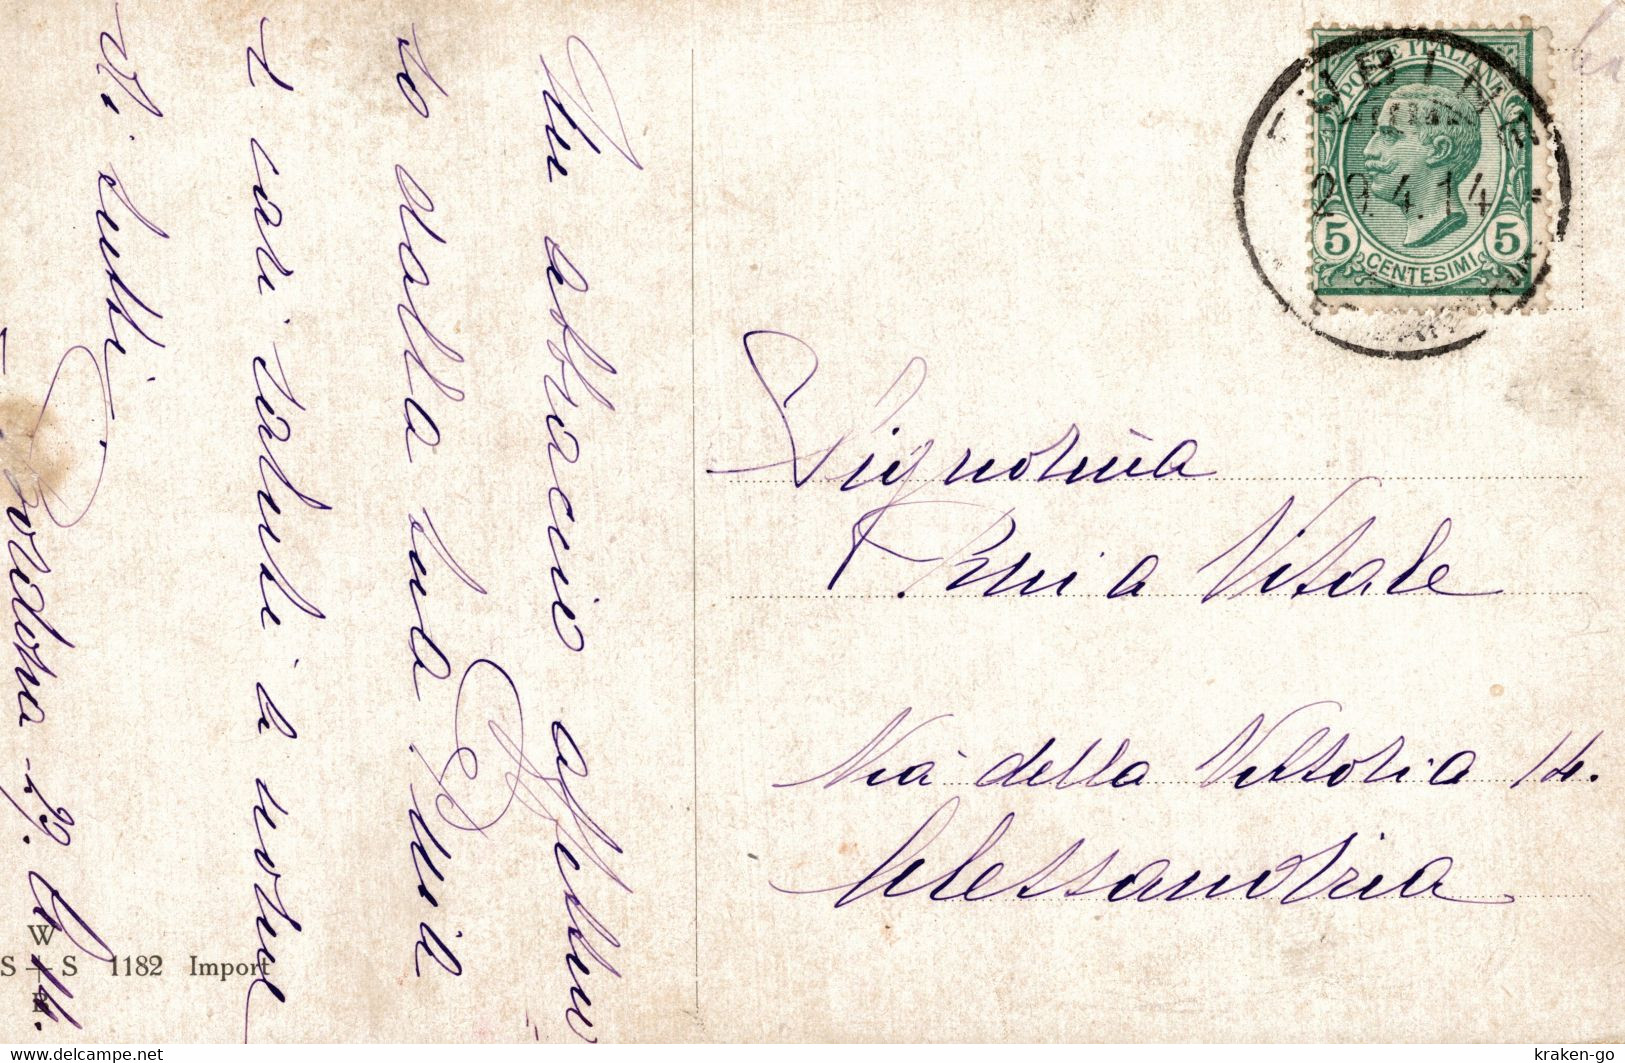 Un abbraccio affettuo
to dalla tua
e cari saluti a nome
di tutti
29.
14.
W
S S 1182 Import
B
POSTE ITALIANE
5 CENTESIMI 5
LUBINE
29.4.14
Signorina
Vitale
Via della Vittoria 14.
Alessandria
www.delcampe.net
kraken-go